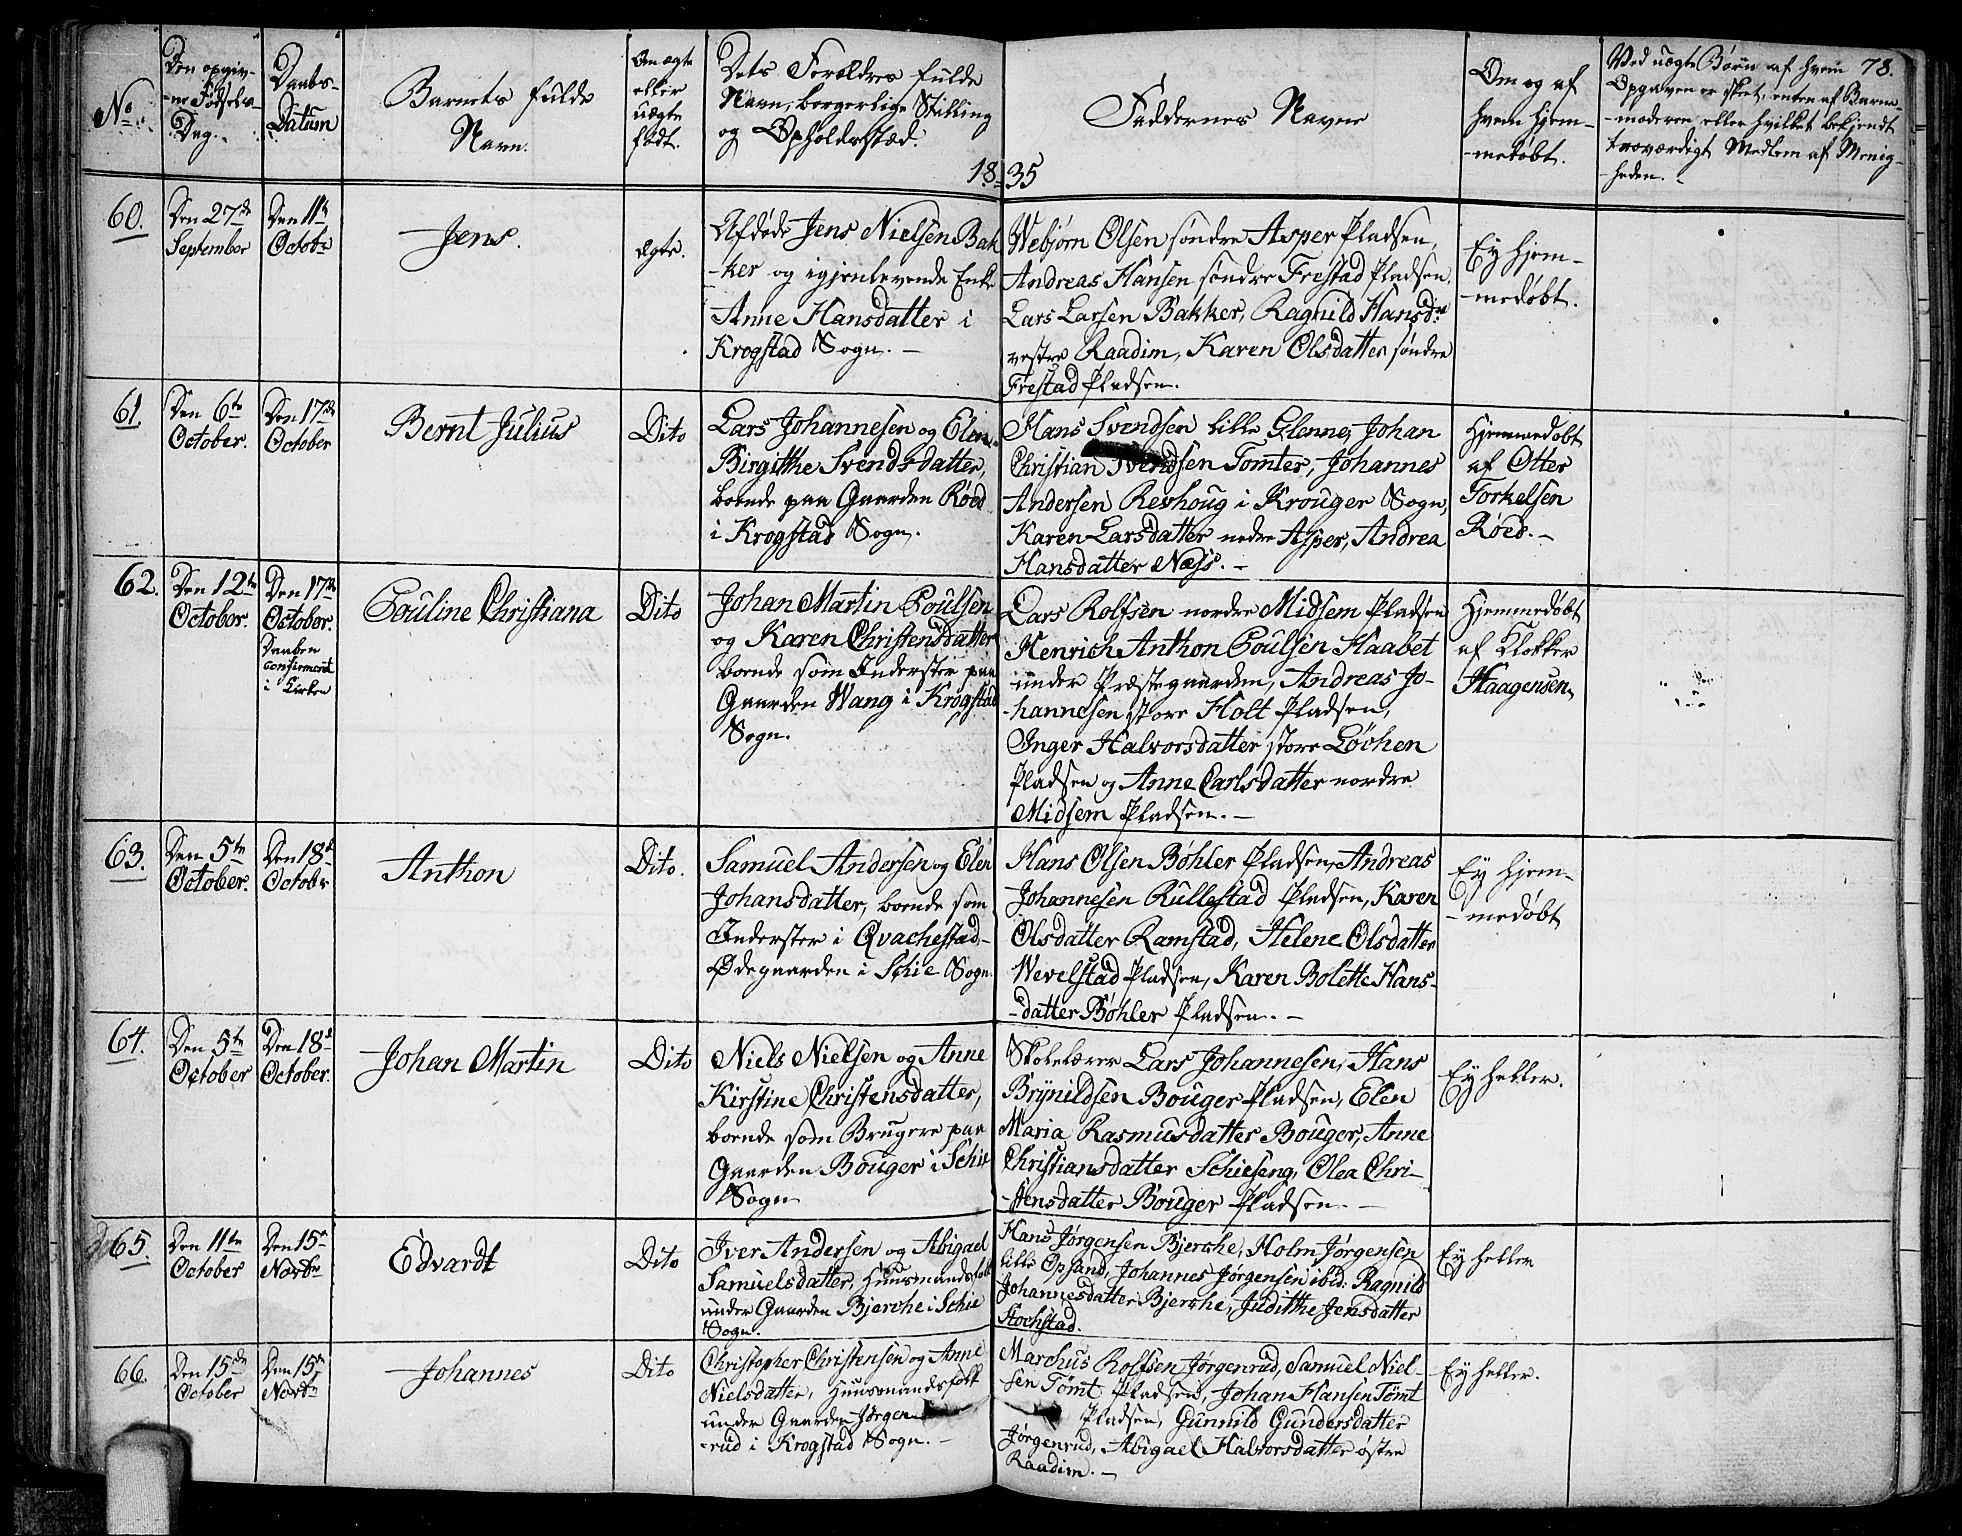 78.
No
Den opgiv-
-ne Fødsels-
Dag.
Daabs-
Datum
Barnets fulde
Navn.
Om ægte
eller
uægte
født.
Dets Forældres fulde
Navn, borgerlige Stilling
og Opholdssted.
Faddernes Navne
Om og af
hvem hjem-
-medøbt.
Ved uægte Børn af hvem
Opgaven er skeet, enten af Barne-
-moderen eller hvilket bekjendt
troværdigt Medlem af Menig-
-heden.
1835
60.
Den 27de
September
Den 11te
Octobr
Jens.
ægte.
Afdøde Jens Nielsen Bak
-ker og igjenlevende Enke
Anne Hansdatter i
Krogstad Sogn. -
Webjørn Olsen søndre Asper Pladsen,
Andreas Hansen søndre Frestad Pladsen,
Lars Larsen Bakker, Ragnild Hansdtr
vestre Raadim, Karen Olsdatter søndre
Frestad Pladsen.
Ey hjem-
-medøbt.
61.
Den 6te
October.
Den 17de
October
Bernt Julius
Dito
Lars Johannesen og Elen
Birgitthe Svendsdatter,
boende paa Gaarden Röed
i Krogstad Sogn.
Hans Svendsen lille Glenne, Johan
Christian Svendsen Tomter, Johannes
Andersen Revhoug i Krouger Sogn,
Karen Larsdatter nedre Asper, Andrea
Hansdatter Næss. -
Hjemmedøbt
af Otter
Torkelsen
Röed. -
62.
Den 12te
October.
Den 17de
October.
Daaben
confirmeret
i Kirken
Pouline Christiana
Dito
Johan Martin Poulsen
og Karen Christensdatter
boende som Inderster paa
Gaarden Wang i Krogstad
Sogn.
Lars Rolfsen nordre Midsem Pladsen
Henrich Anthon Poulsen Haabet
under Præstegaarden, Andreas Jo-
-hannesen store Holt Pladsen,
Inger Halvorsdatter store Löchen
Pladsen og Anne Carlsdatter nordre
Midsem Pladsen. -
Hjemmedøbt
af Klokker
Haagensen,
63.
Den 5te
October.
Den 18de
Octobr
Anthon
Dito.
Samuel Andersen og Elen
Johansdatter, boende som
Inderster i Qvachestad-
Ødegaarden i Schie Sogn.
Hans Olsen Böhler Pladsen, Andreas
Johannesen Rullestad Pladsen, Karen
Olsdatter Ramstad, Helene Olsdatter
Wevelstad Pladsen, Karen Bolette Hans-
-datter Böhler Pladsen. -
Ey hjem-
-medøbt
64.
Den 5te
October
Den 18de
October.
Johan Martin
Dito
Niels Nielsen og Anne
Kirstine Christensdatter,
boende som Brugere paa
Gaarden Bouger i Schie
Sogn
Skolelærer Lars Johannesen, Hans
Brynildsen Bouger Pladsen, Elen
Maria Rasmusdatter Bouger, Anne
Christiansdatter Schieseng, Olea Chri-
-stensdatter Bouger Pladsen. -
Ey heller.
65.
Den 11te
October
Den 15de
Novbr
Edvardt
Dito
Iver Andersen og Abigael
Samuelsdatter, Huusmandsfolk
under Gaarden Bjerche i Schie
Sogn.
Hans Jørgensen Bjerche, Holm Jørgensen
lille Opsand, Johannes Jørgensen ibid: Ragnild
Johannesdatter Bjerche, Judithe Jensdatter
Stochstad.
Ey heller
66.
Den 15de
October
Den 15de
Novbr
Johannes
Dito
Christopher Christensen og Anne
Nielsdatter, Huusmandsfolk
under Gaarden Jørgen-
-rud i Krogstad Sogn. -
Marchus Rolfsen Jørgenrud, Samuel Niel-
-sen Tömt Pladsen, Johan Hansen Tömt
Pladsen, Gunnild Gundersdatter
Jørgenrud, Abigael Halvorsdatter østre
Raadim. -
Ey heller.